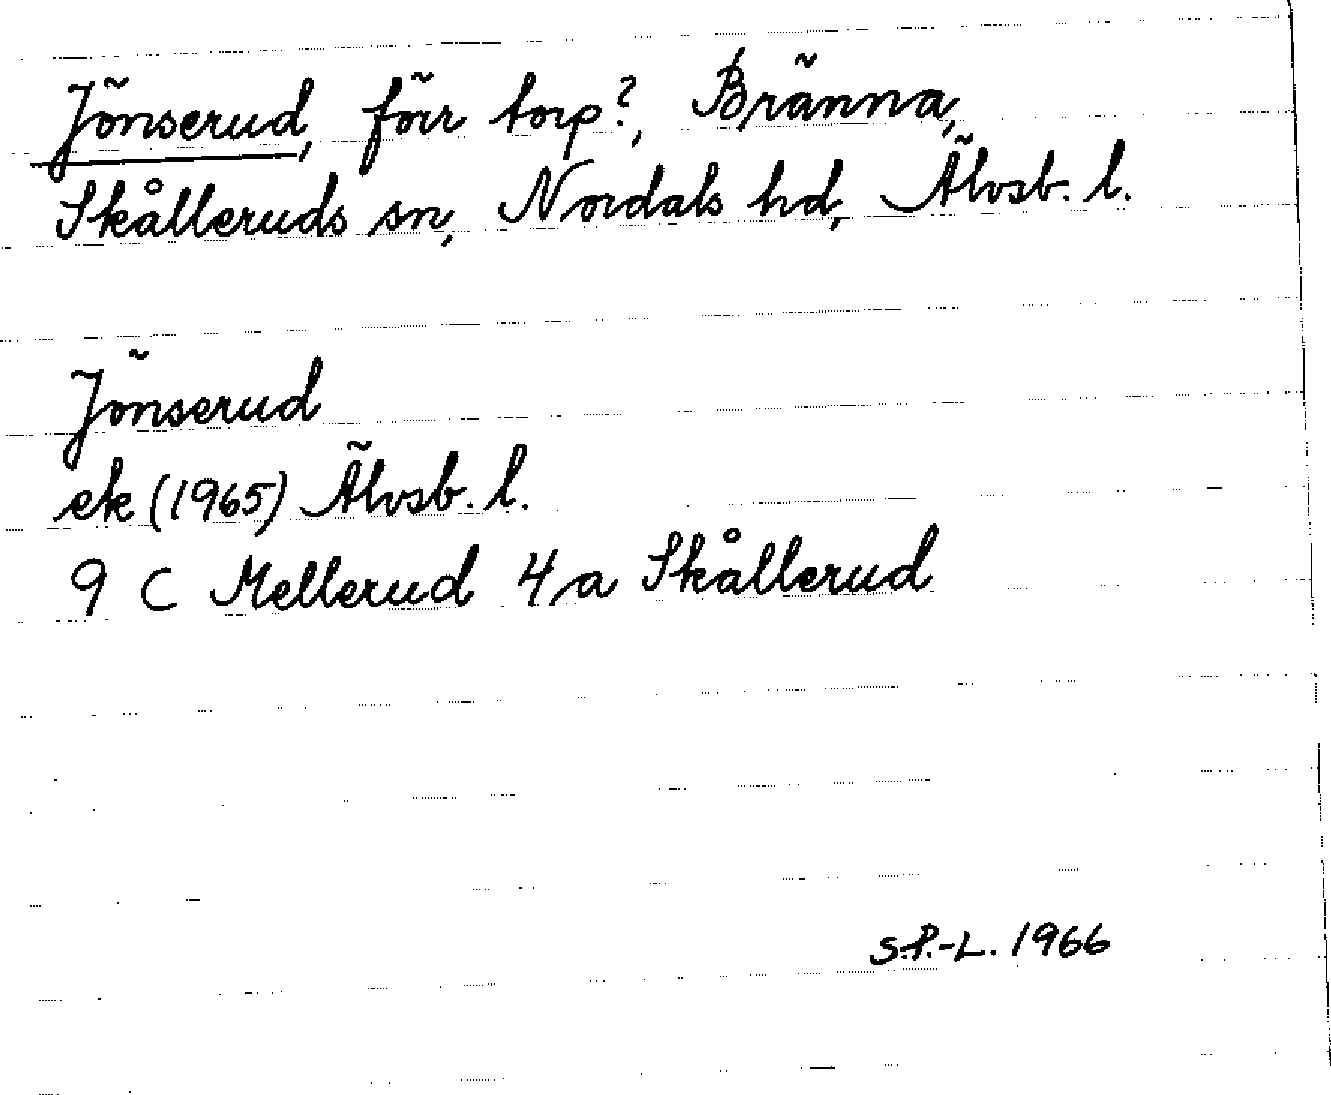 Jönserud, förr torp?, Bränna,
Skålleruds sn, Nordals hd, Älvsb. l.
Jönserud
ek (1965) Älvsb. l.
9 C Mellerud 4a Skållerud
S.P.-L. 1966